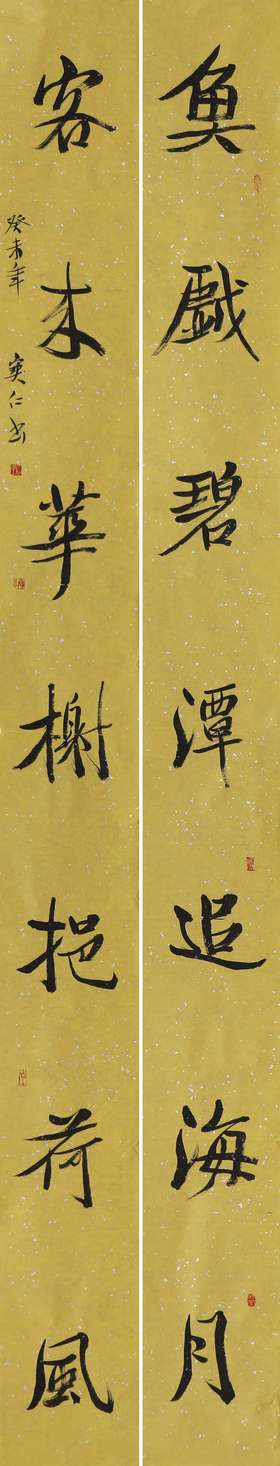 魚戲碧潭追海月
客来華榭挹荷風
癸未年 奭仁书